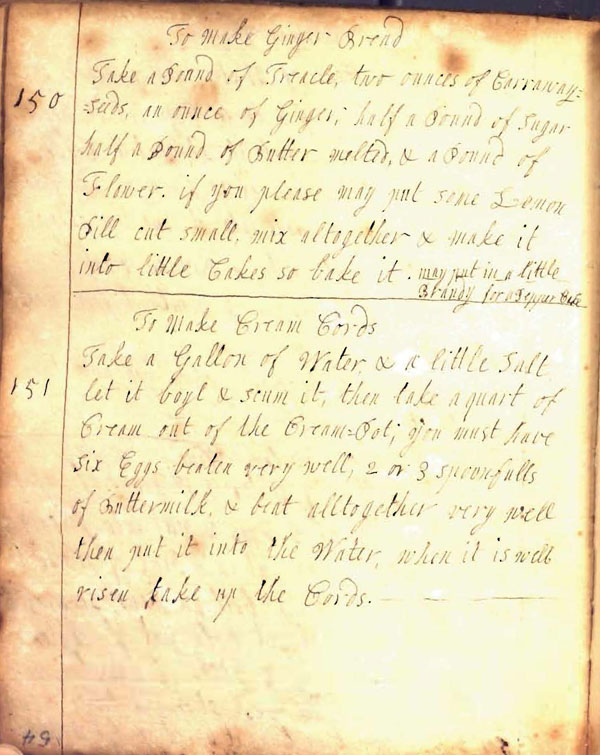 To Make Ginger Bread
150
Take a Pound of Treacle, two ounces of Carraway=
=seeds, an ounce of Ginger, half a Pound of Sugar
half a Pound of Butter melted, & a Pound of
Flower. if you please may put some Lemon
Pill cut small, mix altogether & make it
into little Cakes so bake it. may put in a little
Brandy for a Pepper Cake
To Make Cream Cords
151
Take a Gallon of Water, & a little Salt
let it boyl & scum it, then take a quart of
Cream out of the Cream=Pot; you must have
six Eggs beaten very well, 2 or 3 spoonfulls
of Buttermilk, & beat alltogether very well
then put it into the Water, when it is well
risen take up the Cords.
54